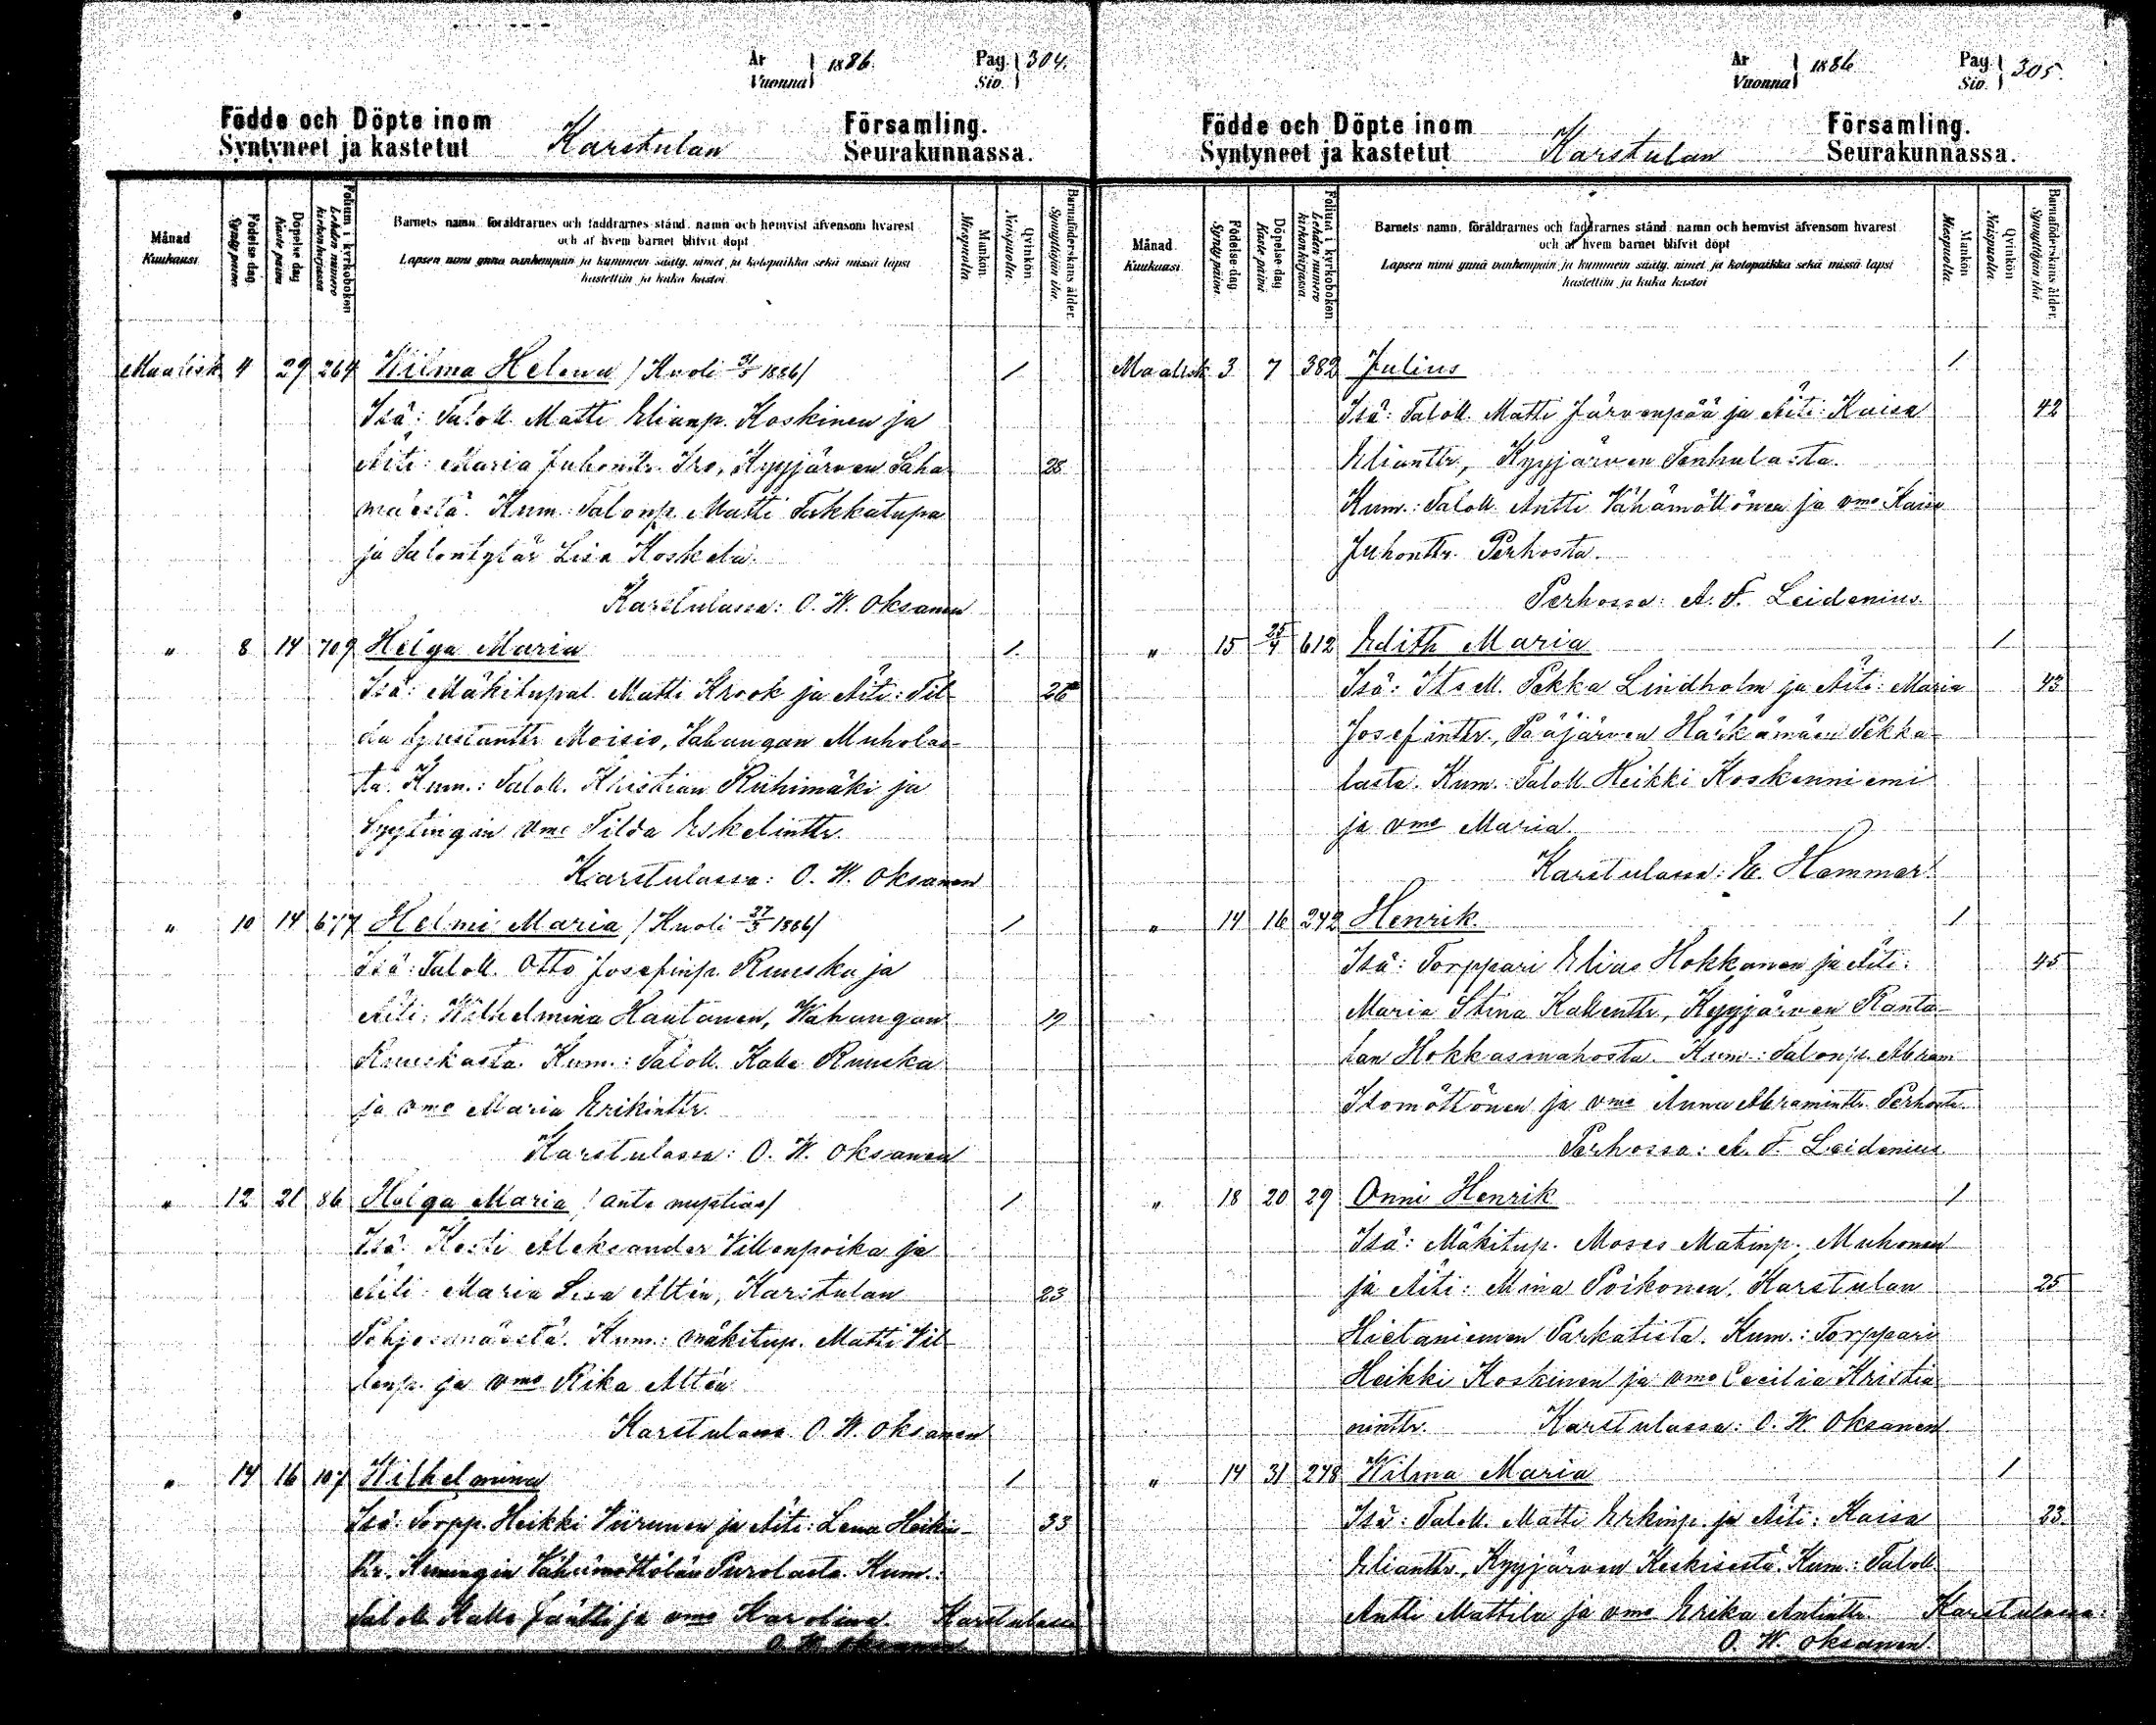 År Vuonna } 1886. Pag. Siv. } 304.
Födde och Döpte inom Karstulan Församling.
Syntyneet ja kastetut Seurakunnassa.
Månad Kuukausi
Födelse-dag Synty päivä
Döpelse dag Kaste päivä
Folium i kyrkoboken Lehden numero kirkonkirjassa
Barnets namn, föräldrarnes och faddrarnes stånd, namn och hemvist äfvensom hvarest
och af hvem barnet blifvit döpt
Lapsen nimi ynnä vanhempain ja kummein sääty, nimet ja kotopaikka sekä missä lapsi
kastettiin ja kuka kastoi
Mankön. Miespuolta.
Qvinkön. Naispuolta.
Barnaföderskans ålder. Synnyttäjän ikä.
Maalisk 4 29 264 Wilma Helena /Kuoli 31/5 1886/ 1
Isä: Taloll. Matti Elianp. Koskinen ja
Äiti: Maria Juhontr. Iso, Kyyjärven Saha- 25
mäestä. Kum. Talonp. Matti Takkatupa
ja Talontytär Lisa Koskela.
Karstulassa: O. W. Oksanen
" 8 14 709 Helga Maria 1.
Isä: Mäkitupal. Matti Krook ja Äiti: Til- 26
da Gustantr Moisio, Vahangan Muholas-
ta. Kum.: Taloll. Kristian Riihimäki ja
Syytingin vmo Tilda Eskelinttr.
Karstulassa: O. W. Oksanen
" 10 14 677 Helmi Maria /Kuoli 27/3 1886/ 1
Isä: Taloll. Otto Josefinp. Ruuska ja
Äiti: Wilhelmina Hautanen, Wahangan 19
Ruuskasta. Kum.: Taloll. Kalle Ruuska
ja vmo Maria Erikinttr.
Karstulassa: O. W. Oksanen
" 12 21 86 Helga Maria /ante nuptias/ 1
Isä: Kosti Aleksander Villenpoika ja
Äiti: Maria Lisa Altén, Karstulan 23
Pohjosmäestä. Kum.: mäkitup. Matti Vil-
lenp. ja vmo Rika Altén
Karstulassa O. W. Oksanen
" 14 16 107 Wilhelmina 1
Isä: Torpp. Heikki Piirunen ja Äiti: Lena Heikin- 33
tr. Kiningin Vähämöttölän Purolasta. Kum.:
Taloll Kalle Jäntti ja vmo Karolina. Karstulassa
O. W. Oksanen
År Vuonna } 1886 Pag. Siv. } 305.
Födde och Döpte inom Karstulan Församling.
Syntyneet ja kastetut Seurakunnassa.
Månad Kuukausi
Födelse-dag Synty päivä
Döpelse dag Kaste päivä
Folium i kyrkoboken. Lehden numero kirkonkirjassa.
Barnets namn, föräldrarnes och faddrarnes stånd, namn och hemvist äfvensom hvarest
och af hvem barnet blifvit döpt
Lapsen nimi ynnä vanhempain ja kummein sääty, nimet ja kotopaikka sekä missä lapsi
kastettiin ja kuka kastoi
Mankön Miespuolta.
Qvinkön Naispuolta.
Barnaföderskans ålder. Synnyttäjän ikä.
Maalisk 3 7 382 Julius 1
Isä: Taloll. Matti Järvenpää ja Äiti: Kaisa 42
Elianttr, Kyyjärven Tenhulasta.
Kum.: Taloll Antti Vähämöttönen ja vmo Kaisa
Juhonttr. Perhosta.
Perhossa: A. F. Leidenius.
" 15 25/4 612 Edith Maria 1
Isä: Itsell. Pekka Lindholm ja Äiti: Maria 43
Josefinttr., Pääjärven Härkämäen Pekka-
lasta. Kum. Taloll Heikki Koskenniemi
ja vmo Maria.
Karstulassa: E. Hammar.
" 14 16 242 Henrik. 1
Isä: Torppari Elias Hokkanen ja Äiti: 45
Maria Stina Kallenttr, Kyyjärven Ranta-
lan Hokkasmahosta. Kum.: Talonp. Abram
Isomöttönen ja vmo Anna Abraminttr. Perhosta.
Perhossa: A. F. Leidenius
" 18 20 29 Onni Henrik 1
Isä: Mäkitup. Moses Matinp. Muhonen
ja Äiti: Mina Poikonen, Karstulan 25
Hietaniemen Parkatista. Kum.: Torppari
Heikki Koskinen ja vmo Cecilia Kristia-
ninttr. Karstulassa: O. W. Oksanen
" 14 31 248 Wilma Maria 1
Isä: Taloll. Matti Erkinp. ja Äiti: Kaisa 23.
Elianttr., Kyyjärven Keskisestä. Kum.: Taloll
Antti Mattila ja vmo Erika Antinttr. Karstulassa:
O. W. Oksanen.